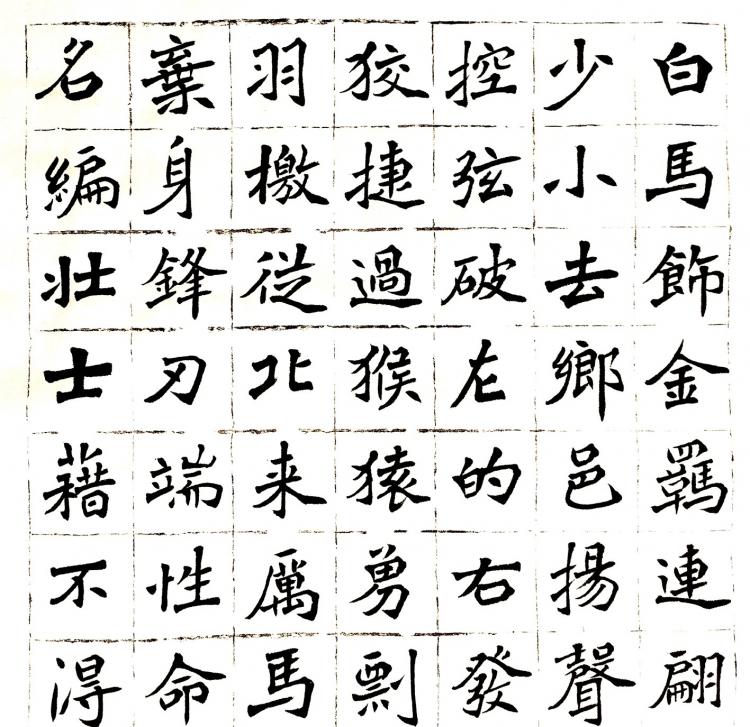 白馬飾金羈連翩
少小去鄉邑揚聲
控弦破左的右發
狡捷過猴猿勇剽
羽檄從北来厲馬
棄身鋒刃端性命
名編壯士藉不得